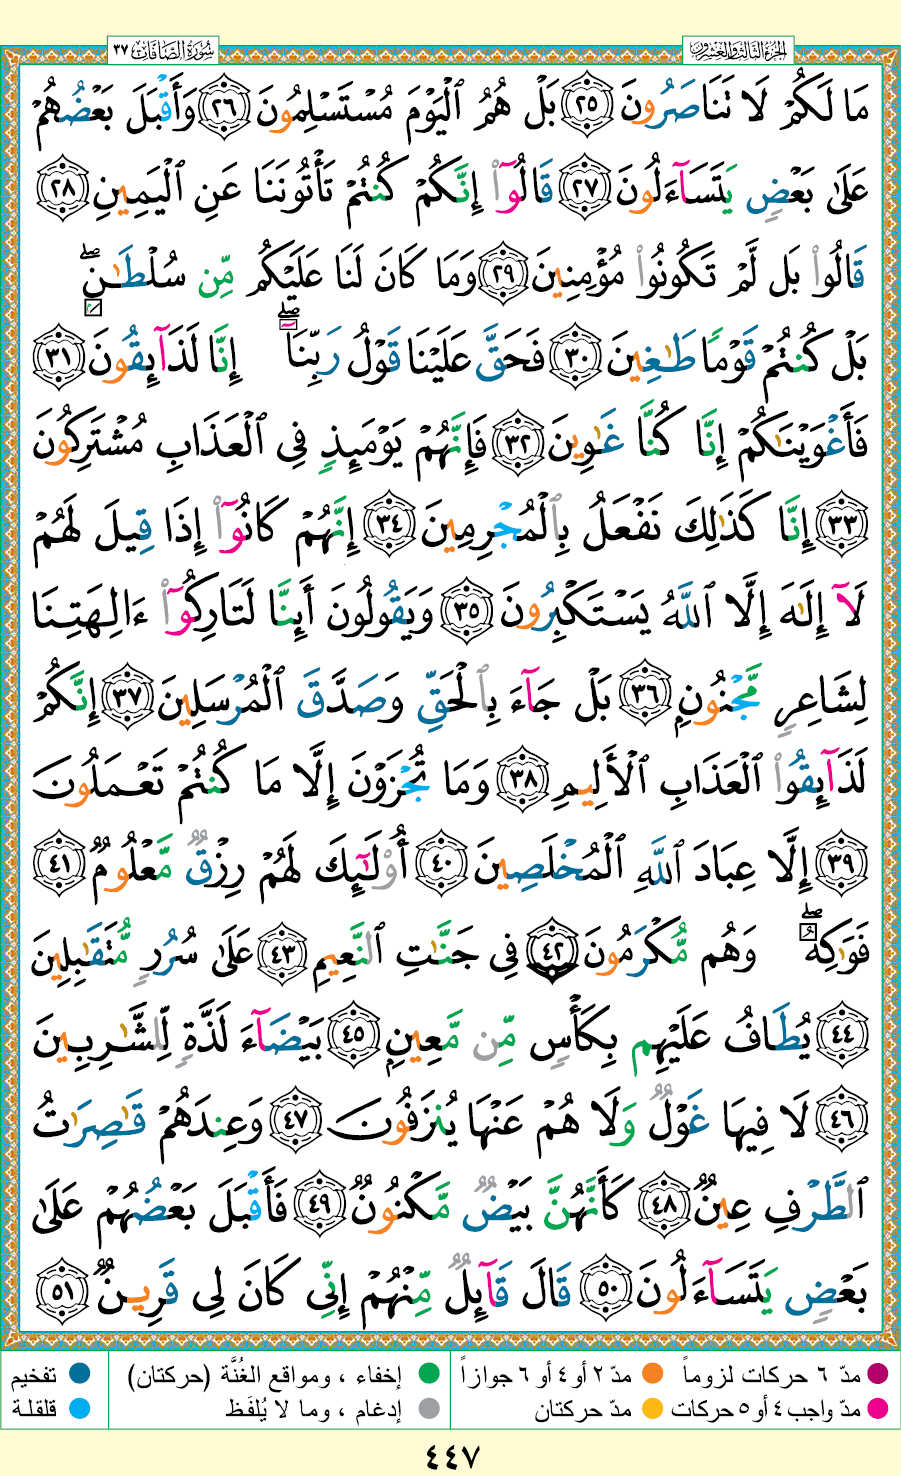 سُورَةُ الصَّافَّات ٣٧
الجُزءُ الثَّالِثُ وَالعِشرُونَ
مَا لَكُمْ لَا تَنَاصَرُونَ ٢٥ بَلْ هُمُ ٱلْيَوْمَ مُسْتَسْلِمُونَ ٢٦ وَأَقْبَلَ بَعْضُهُمْ
عَلَىٰ بَعْضٍ يَتَسَآءَلُونَ ٢٧ قَالُوٓا۟ إِنَّكُمْ كُنتُمْ تَأْتُونَنَا عَنِ ٱلْيَمِينِ ٢٨
قَالُوا۟ بَل لَّمْ تَكُونُوا۟ مُؤْمِنِينَ ٢٩ وَمَا كَانَ لَنَا عَلَيْكُم مِّن سُلْطَـٰنٍۭ ۖ
بَلْ كُنتُمْ قَوْمًا طَـٰغِينَ ٣٠ فَحَقَّ عَلَيْنَا قَوْلُ رَبِّنَآ ۖ إِنَّا لَذَآئِقُونَ ٣١
فَأَغْوَيْنَـٰكُمْ إِنَّا كُنَّا غَـٰوِينَ ٣٢ فَإِنَّهُمْ يَوْمَئِذٍ فِى ٱلْعَذَابِ مُشْتَرِكُونَ
٣٣ إِنَّا كَذَٰلِكَ نَفْعَلُ بِٱلْمُجْرِمِينَ ٣٤ إِنَّهُمْ كَانُوٓا۟ إِذَا قِيلَ لَهُمْ
لَآ إِلَـٰهَ إِلَّا ٱللَّهُ يَسْتَكْبِرُونَ ٣٥ وَيَقُولُونَ أَئِنَّا لَتَارِكُوٓا۟ ءَالِهَتِنَا
لِشَاعِرٍ مَّجْنُونٍۭ ٣٦ بَلْ جَآءَ بِٱلْحَقِّ وَصَدَّقَ ٱلْمُرْسَلِينَ ٣٧ إِنَّكُمْ
لَذَآئِقُوا۟ ٱلْعَذَابِ ٱلْأَلِيمِ ٣٨ وَمَا تُجْزَوْنَ إِلَّا مَا كُنتُمْ تَعْمَلُونَ
٣٩ إِلَّا عِبَادَ ٱللَّهِ ٱلْمُخْلَصِينَ ٤٠ أُو۟لَـٰٓئِكَ لَهُمْ رِزْقٌ مَّعْلُومٌ ٤١
فَوَٰكِهُ ۖ وَهُم مُّكْرَمُونَ ٤٢ فِى جَنَّـٰتِ ٱلنَّعِيمِ ٤٣ عَلَىٰ سُرُرٍ مُّتَقَـٰبِلِينَ
٤٤ يُطَافُ عَلَيْهِم بِكَأْسٍ مِّن مَّعِينٍۭ ٤٥ بَيْضَآءَ لَذَّةٍ لِّلشَّـٰرِبِينَ
٤٦ لَا فِيهَا غَوْلٌ وَلَا هُمْ عَنْهَا يُنزَفُونَ ٤٧ وَعِندَهُمْ قَـٰصِرَٰتُ
ٱلطَّرْفِ عِينٌ ٤٨ كَأَنَّهُنَّ بَيْضٌ مَّكْنُونٌ ٤٩ فَأَقْبَلَ بَعْضُهُمْ عَلَىٰ
بَعْضٍ يَتَسَآءَلُونَ ٥٠ قَالَ قَآئِلٌ مِّنْهُمْ إِنِّى كَانَ لِى قَرِينٌ ٥١
مدّ ٦ حركات لزوماً مدّ ٢ أو ٤ أو ٦ جوازاً إخفاء ، ومواقع الغُنَّة (حركتان) تفخيم
مدّ واجب ٤ أو ٥ حركات مدّ حركتان إدغام ، وما لا يُلفَظ قلقلة
٤٤٧